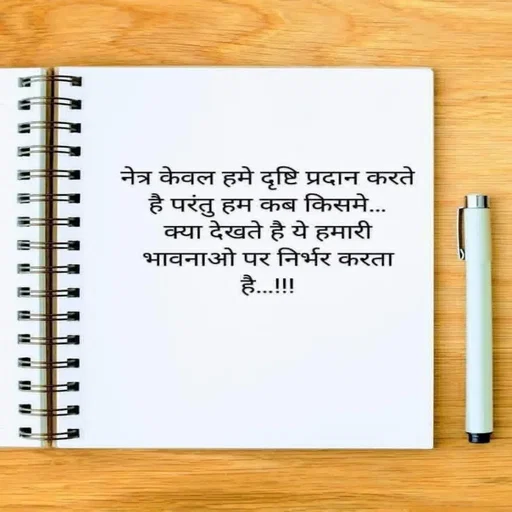 नेत्र केवल हमे दृष्टि प्रदान करते
है परंतु हम कब किसमे...
क्या देखते है ये हमारी
भावनाओ पर निर्भर करता
है...!!!